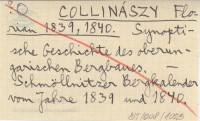 O COLLINÁSZY Flo-
rian 1839, 1840. Synopti-
sche Geschichte des oberun-
garischen Bergbaues. —
Schmöllnitzer Bergkalender
vom Jahre 1839 und 1840.